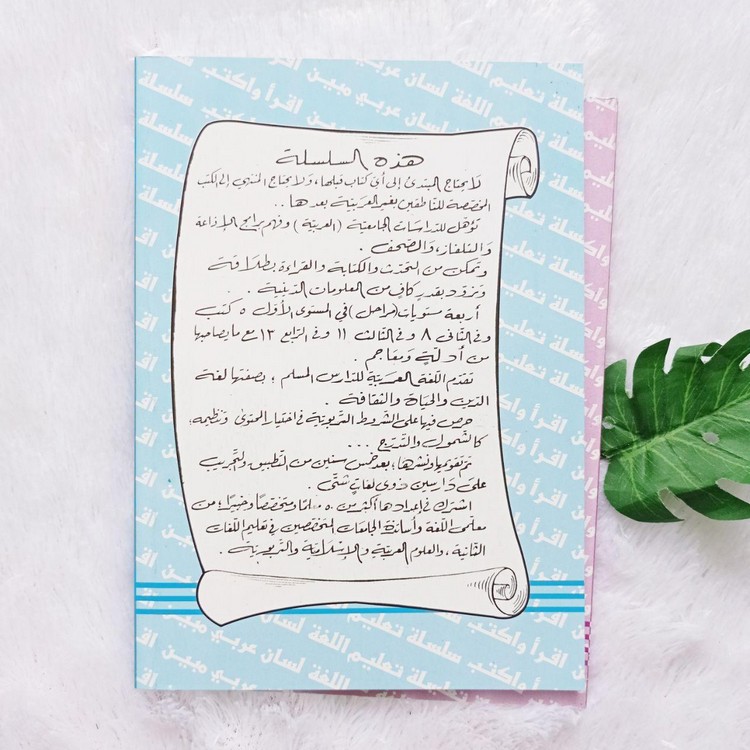 هذه السلسلة
لا يحتاج المبتدئ إلى أي كتاب قبلها، ولا يحتاج المنتهي إلى الكتب
المخصصة للناطقين بغير العربية بعدها ..
تؤهل للدراسات الجامعية (العربية) وفهم برامج الإذاعة
والتلفاز، والصحف .
وتمكن من التحدث والكتابة والقراءة بطلاقة
وتزود بقدر كاف من العلومات الدينية .
أربعة مستويات (مراحل) في المستوى الأول ٥ كتب
وفي الثاني ٨ وفي الثالث ١١ وفي الرابع ١٢ مع ما يصاحبها
من أدلة ومعاجم .
تقدم اللغة العربية للدارس المسلم ؛ بصفتها لغة
الدين والحياة والثقافة .
حرص فيها على الشروط التربوية في اختيار المحتوى وتنظيمه؛
كالشمول والتدرج ...
تم تقويمها ونشرها ؛ بعد خمس سنين من التطبيق والتجريب
على دارسين ذوي لغات شتى .
اشترك في إعدادها أكثر من ٥٠ عالما ومتخصصا وخبيرا ؛ من
معلمي اللغة وأساتذة الجامعات المتخصصين في تعليم اللغات
الثانية ، والعلوم العربية والإسلامية والتربوية .
سلسلة تعليم اللغة لسان عربي مبين اقرأ واكتب